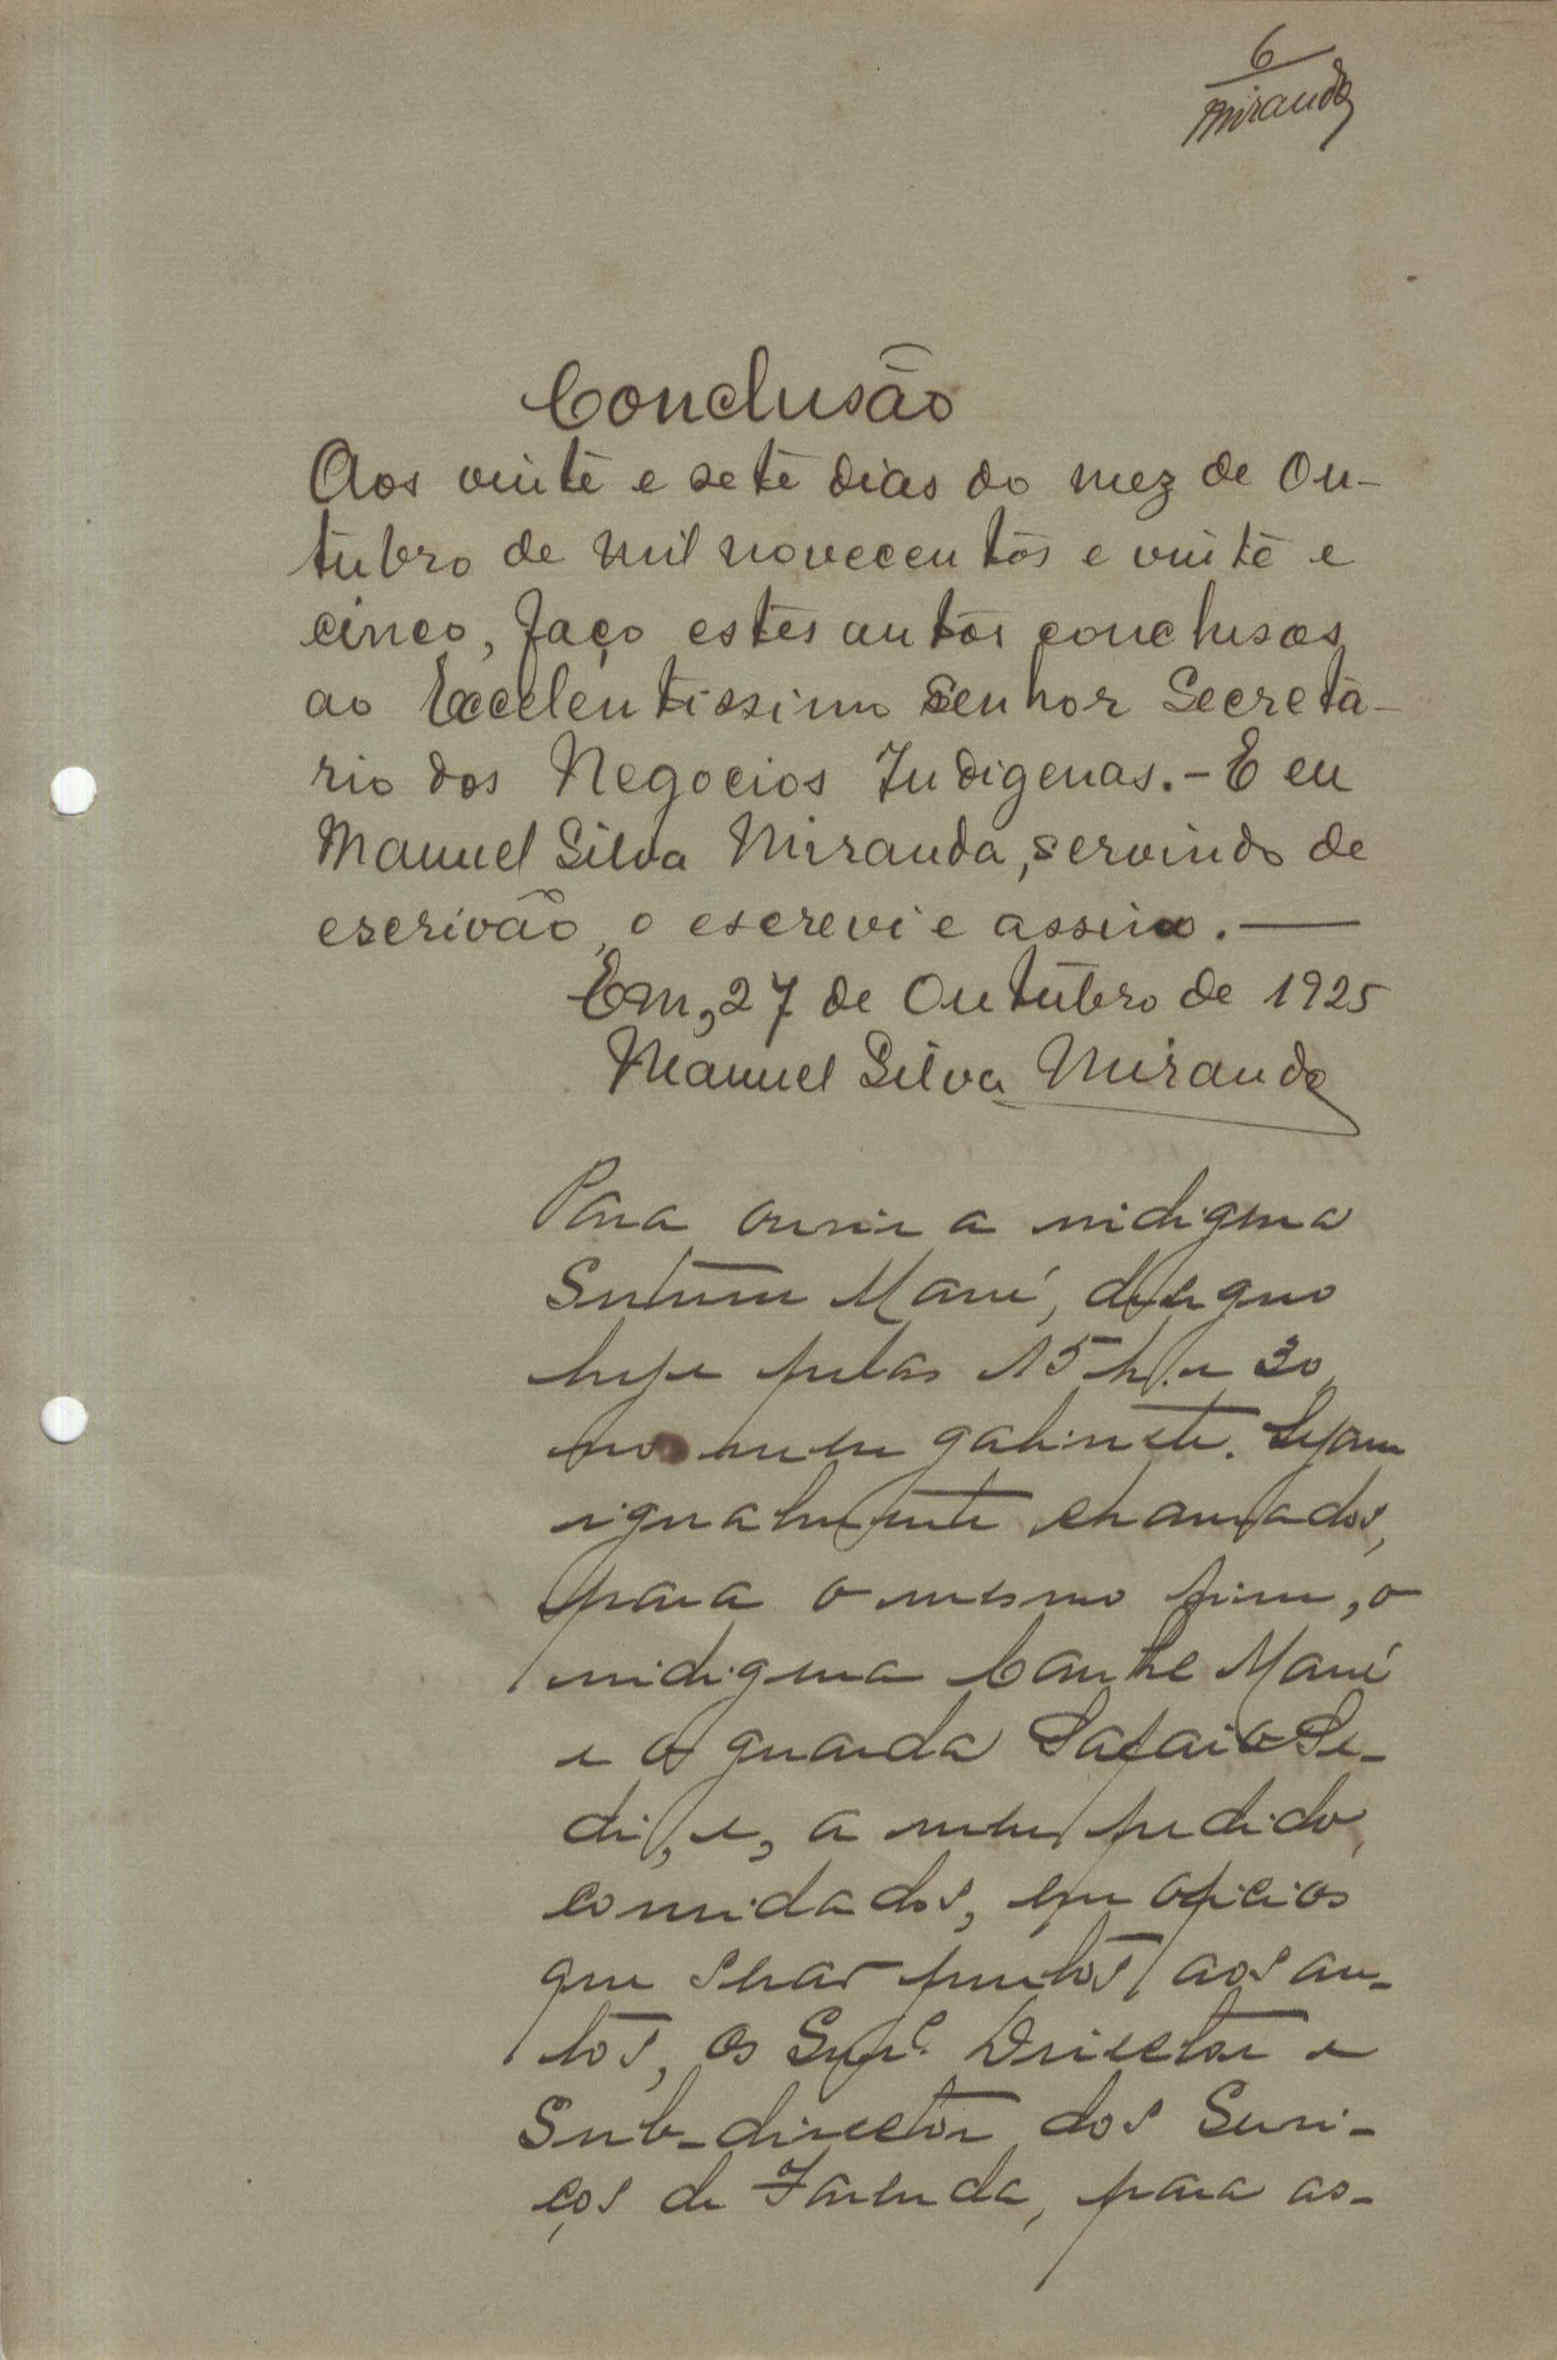 6
Miranda
Conclusão
Aos vinte e sete dias do mez de Ou-
tubro de mil novecentos e vinte e
cinco, faço estes autos conclusos
ao Excelentissimo Senhor Secreta-
rio dos Negocios Indigenas.- E eu
Manuel Silva Miranda, servindo de
escrivão, o escrevi e assino.—
Em, 27 de Outubro de 1925
Manuel Silva Miranda
Para ouvir a indigena
Mané, designo
hoje pelas 15 h. e 30
no meu gabinete. Sejam
igualmente chamados,
para o mesmo fim, o
indigena Mané
e o guarda Se-
di, e, a meu pedido,
convidados, em oficios
que serão juntos aos au-
tos, os Director e
Sub-director dos Servi-
ços de Fazenda, para as-